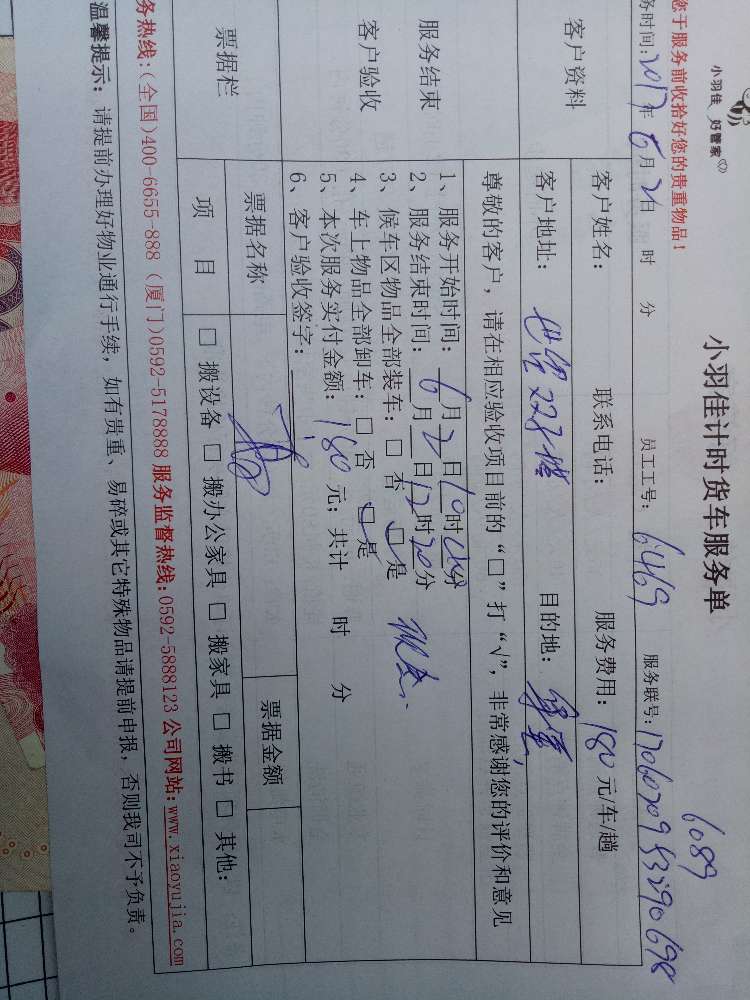 小羽佳 好管家
小羽佳计时货车服务单
6089
您于服务前收拾好您的贵重物品!
务时间:2017年6月2日 时 分 员工工号:6469 服务联号:
客户资料
客户姓名: 联系电话: 服务费用:180元/车/趟
客户地址: 223 目的地:
服务结束
客户验收
尊敬的客户,请在相应验收项目前的“□”打“√”,非常感谢您的评价和意见
1、服务开始时间:6月2日10时 分
2、服务结束时间:6月2日12时20分
3、候车区物品全部装车:□ 否 □ 是
4、车上物品全部卸车:□ 否 □ 是
5、本次服务实付金额:180元;共计 时 分
6、客户验收签字:
票据栏
票据名称 票据金额
项 目 □ 搬设备 □ 搬办公家具 □ 搬家具 □ 搬书 □ 其他:
务热线:(全国)400-6655-888 (厦门)0592-5178888 服务监督热线:0592-5888123 公司网站:www.xiaoyujia.com
温馨提示:请提前办理好物业通行手续,如有贵重、易碎或其它特殊物品请提前申报,否则我司不予负责。